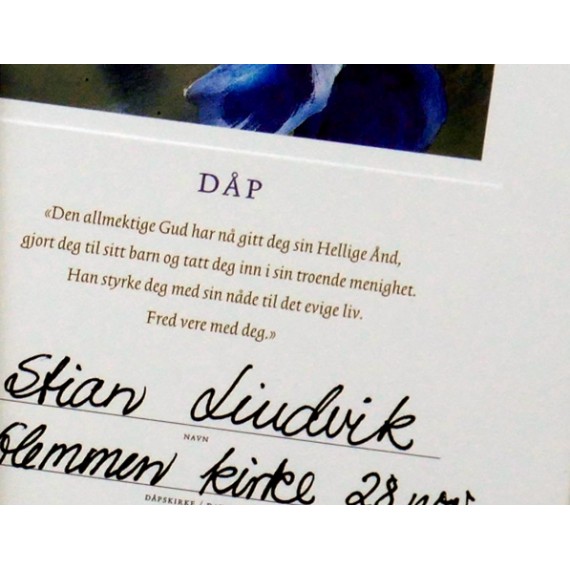 DÅP
«Den allmektige Gud har nå gitt deg sin Hellige Ånd,
gjort deg til sitt barn og tatt deg inn i sin troende menighet.
Han styrke deg med sin nåde til det evige liv.
Fred vere med deg.»
Stian Lindvik
NAVN
Glemmen kirke 28
DÅPSKIRKE /